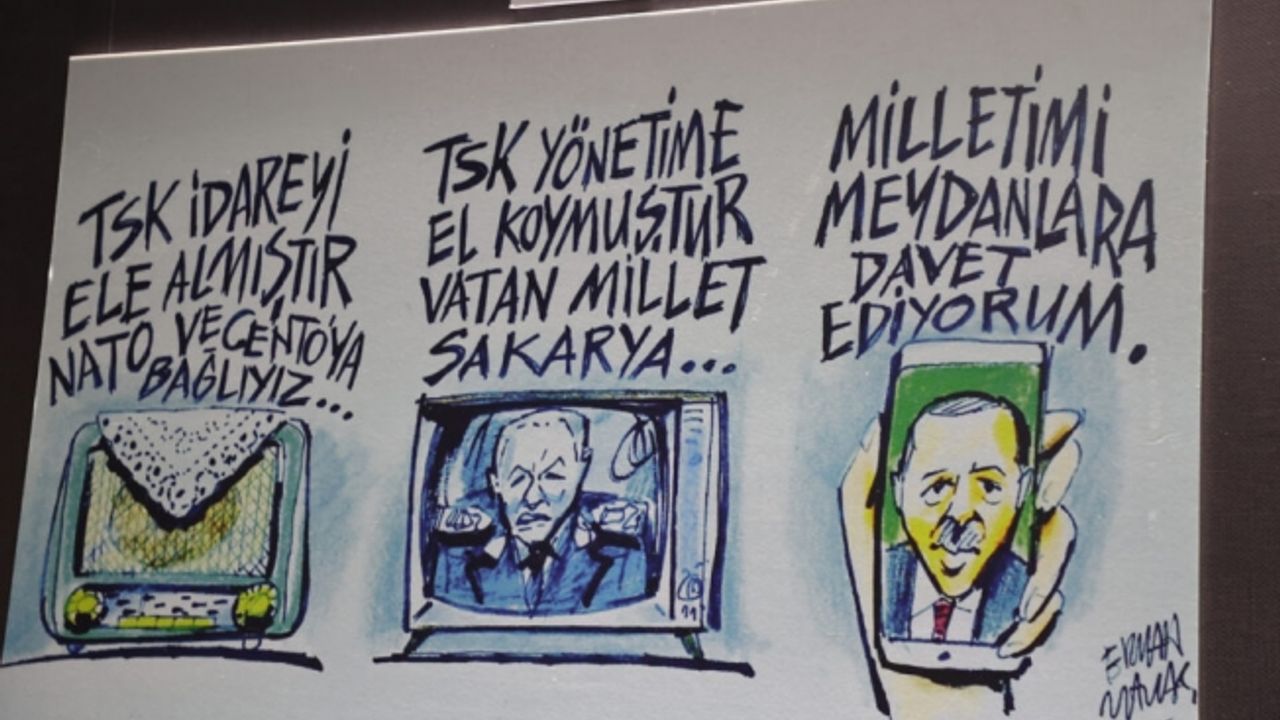 TSK İDAREYİ
ELE ALMIŞTIR
NATO VE CENTO'YA
BAĞLIYIZ...
TSK YÖNETİME
EL KOYMUŞTUR
VATAN MİLLET
SAKARYA...
MİLLETİMİ
MEYDANLARA
DAVET
EDİYORUM.